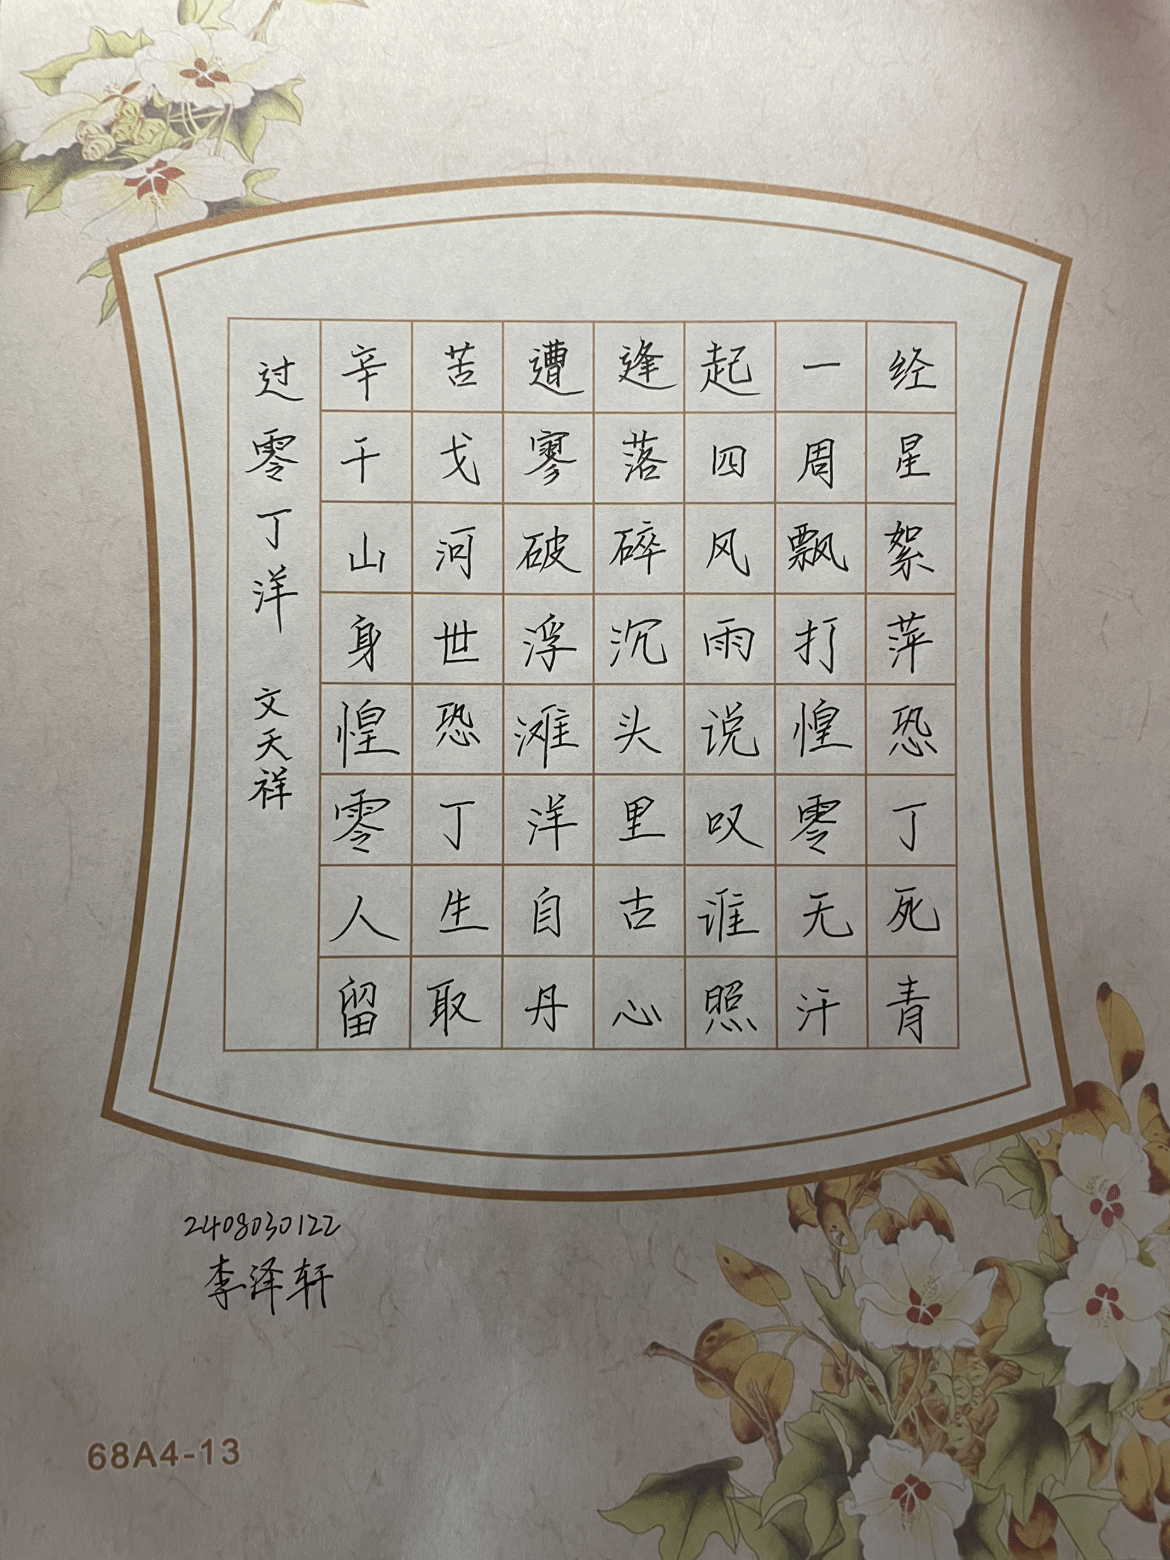 过零丁洋 文天祥
辛苦遭逢起一经
干戈寥落四周星
山河破碎风飘絮
身世浮沉雨打萍
惶恐滩头说惶恐
零丁洋里叹零丁
人生自古谁无死
留取丹心照汗青
2408030122
李泽轩
68A4-13